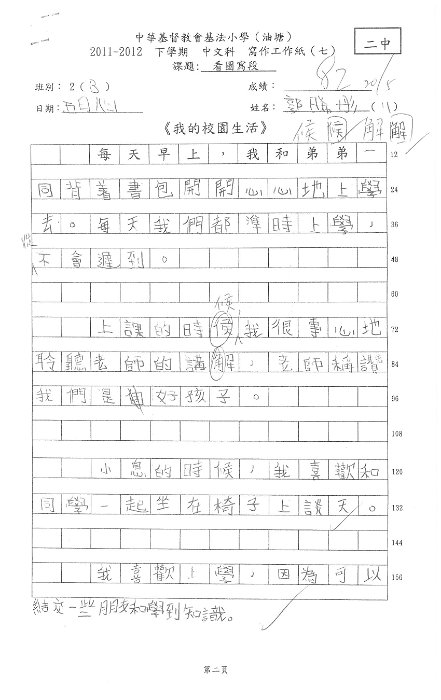 中華基督教會基法小學（油塘）
2011-2012 下學期 中文科 寫作工作紙（七）
二中
課題：看圖寫段
班別：2（B）
成績：82
日期：
姓名：（11）
候 候 解 解
《我的校園生活》
每天早上，我和弟弟一 12
同背着書包開開心心地上學 24
去。每天我們都準時上學， 36
從不會遲到。 48
60
候
上課的時侯，我很專心地 72
聆聽老師的講解，老師稱讚 84
我們是好孩子。 96
108
小息的時候，我喜歡和 120
同學一起坐在椅子上談天。 132
144
我喜歡上學，因為可以 156
結交一些朋友和學到知識。
第二頁